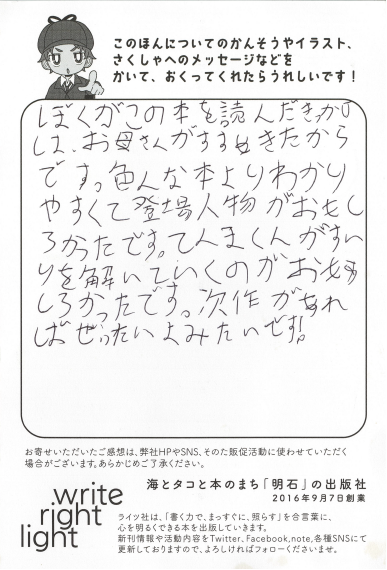 このほんについてのかんそうやイラスト、
さくしゃへのメッセージなどを
かいて、おくってくれたらうれしいです！
ぼくがこの本を読んだきっかけ
は、お母さんがすすめきたから
です。色んな本よりわかり
やすくて登場人物がおもし
ろかったです。てんまくんがすい
りを解いていくのがおも
しろかったです。次作があれ
ばぜったいよみたいです!
お寄せいただいたご感想は、弊社HPやSNS、そのた販促活動に使わせていただく
場合がございます。あらかじめご了承ください。
海とタコと本のまち「明石」の出版社
2016年9月7日創業
write
right
light
ライツ社は、「書く力で、まっすぐに、照らす」を合言葉に、
心を明るくできる本を出版していきます。
新刊情報や活動内容をTwitter、Facebook,note,各種SNSにて
更新しておりますので、よろしければフォローくださいませ。